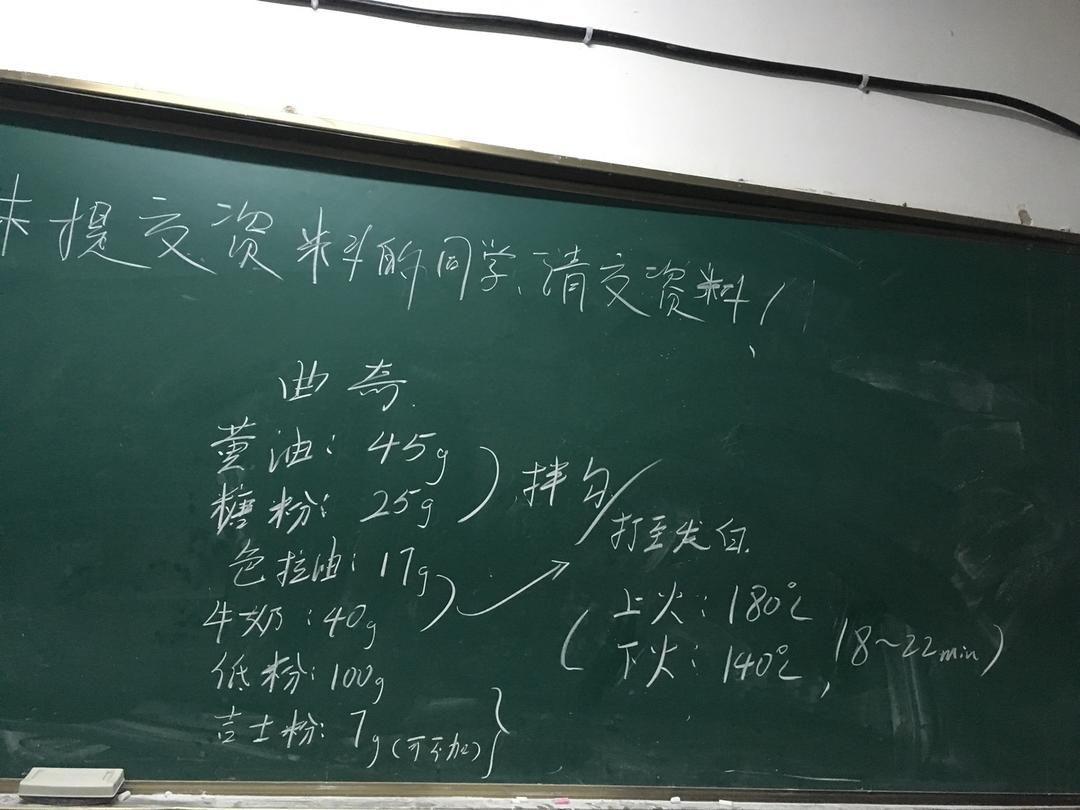 未提交资料的同学,请交资料!
曲奇
黄油: 45g
糖粉: 25g
拌匀/打至发白
色拉油: 17g
牛奶: 40g
低粉: 100g
吉士粉: 7g (可不加)
(上火: 180℃
下火: 140℃, 18~22min)